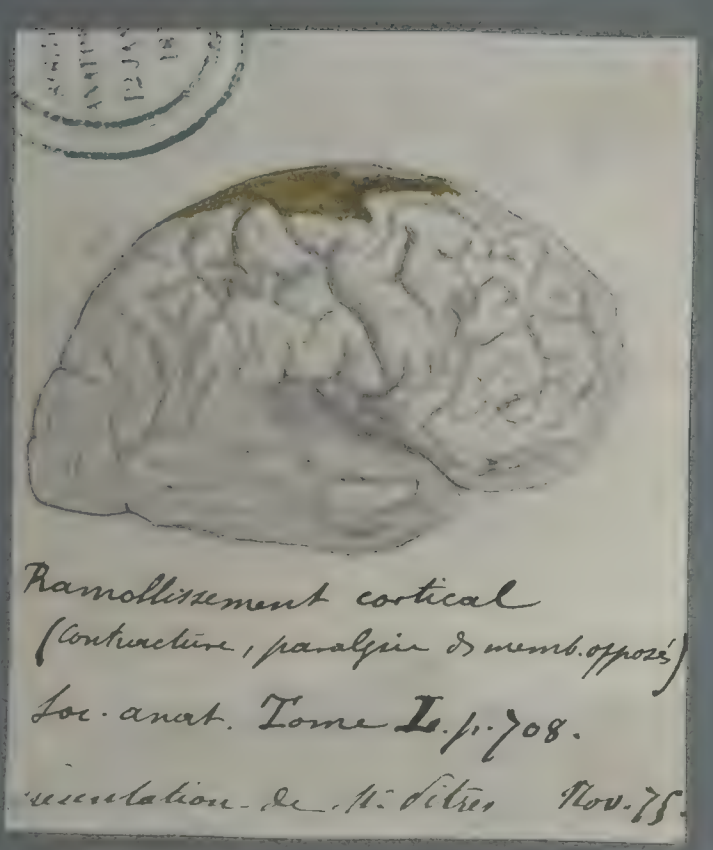 Ramollissement cortical
(Contracture, paralysie ds memb. opposés)
Soc. anat. Tome L. p. 708.
de Mr. Pitres Nov. 75.